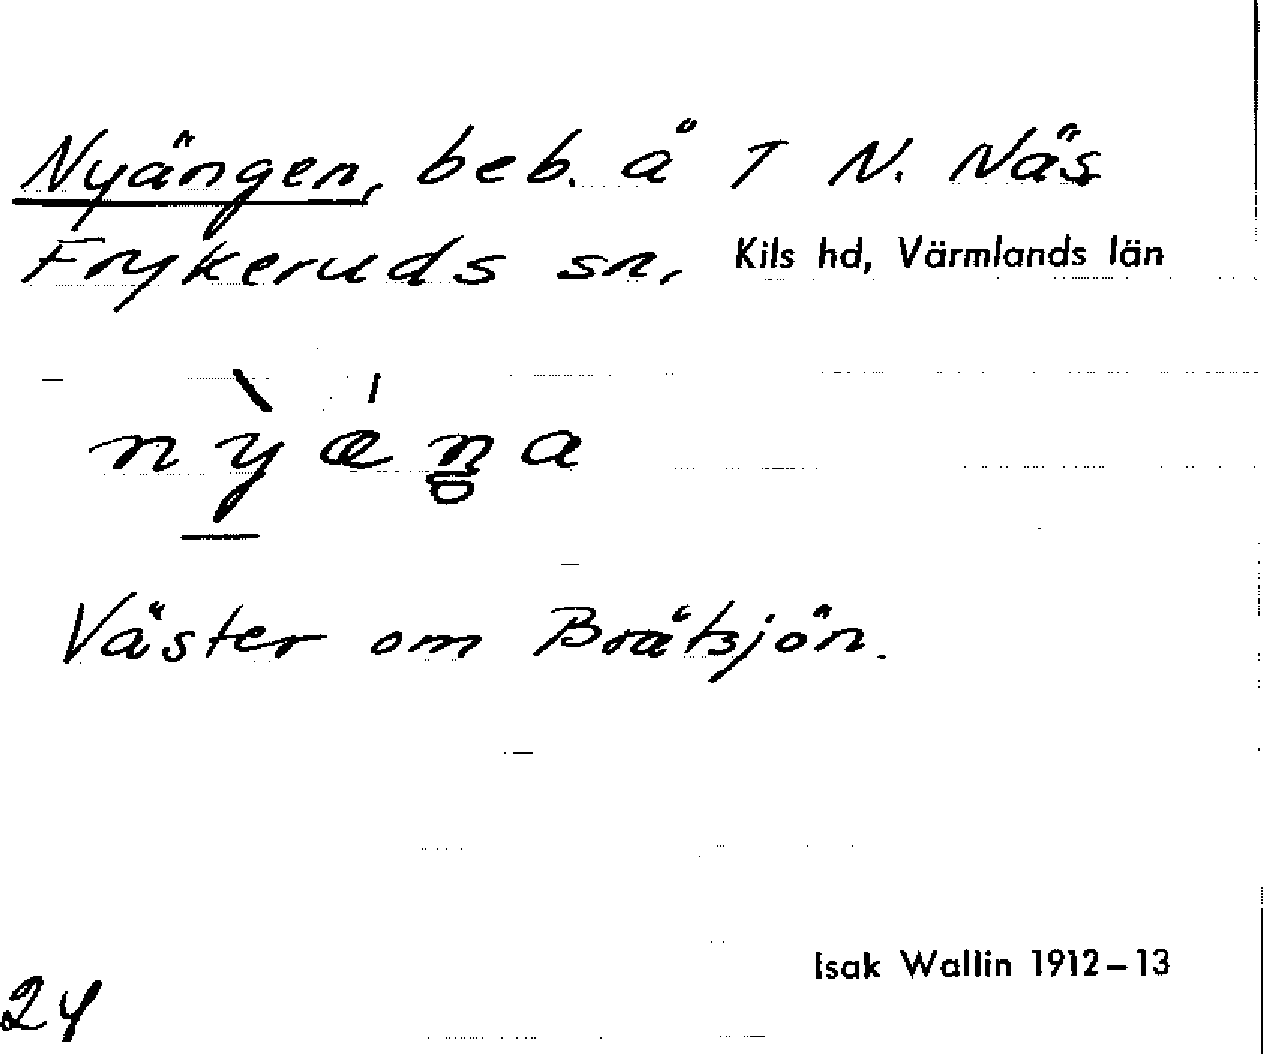 Nyängen, beb. å T N. Näs
Frykeruds sn, Kils hd, Värmlands län
Väster om Brätsjön.
Isak Wallin 1912–13
24